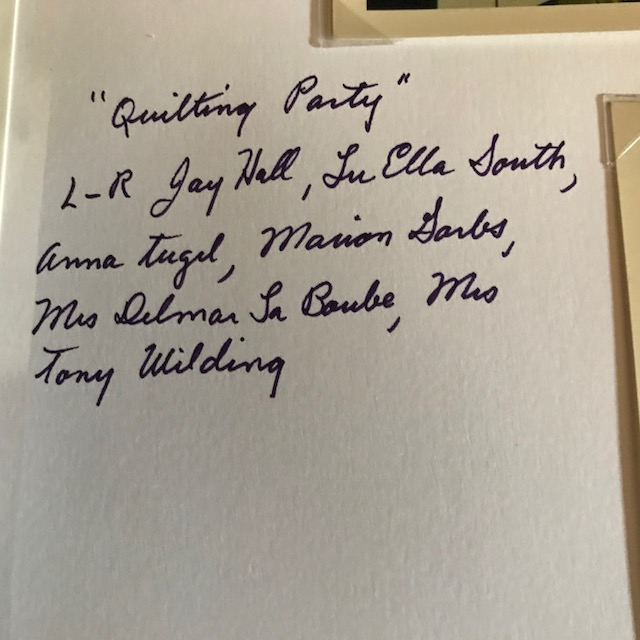 "Quilting Party"
L-R Jay Hall, Lu Ella South,
Anna Tugel, Marion Garbs,
Mrs Delmar La Boube, Mrs
Tony Wilding